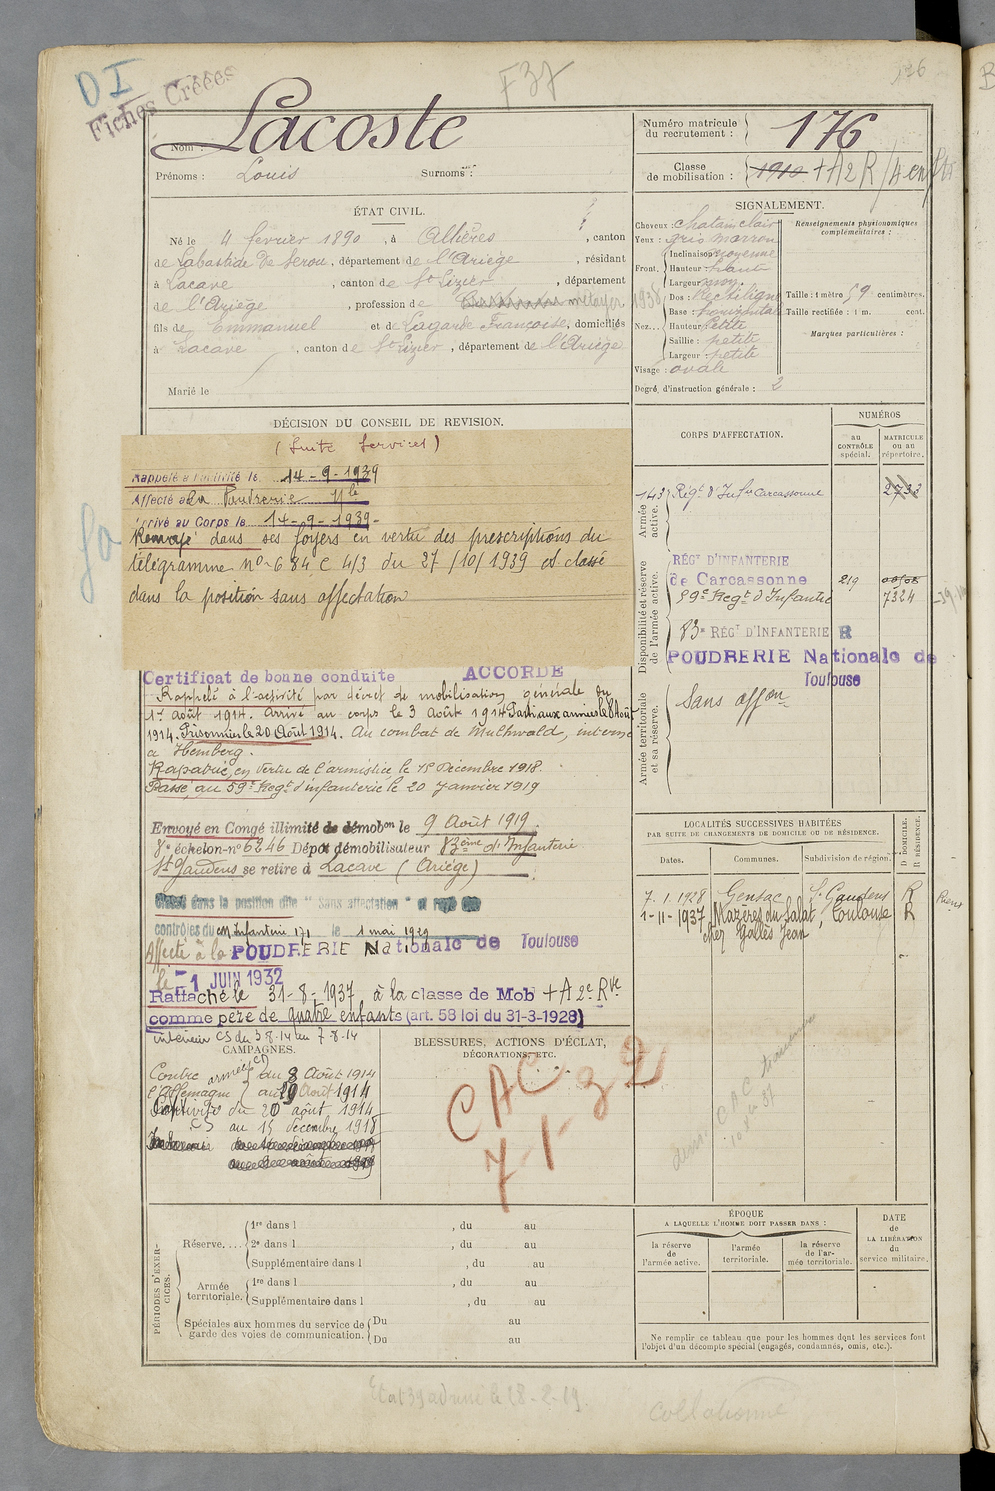 DI
Fiches Créées
F37
Nom : Lacoste
Prénoms : Louis Surnoms :
Numéro matricule du recrutement : 176
Classe de mobilisation : 1910 + A 2 R /4 enfts
ÉTAT CIVIL.
Né le 4 février 1890, à Allières, canton
de Labastide de Serou, département de l'Ariège, résidant
à Lacave, canton de St Lizier, département
de l'Ariège, profession de métayer 1938
fils de Emmanuel et de Lagarde Françoise, domiciliés
à Lacave, canton de St Lizier, département de l'Ariège
Marié le
SIGNALEMENT.
Cheveux : chatain clair
Yeux : gris marron
Front. Inclinaison moyenne
Hauteur : haute
Largeur moy.
Nez... Dos : Rectiligne
Base : horizontale
Hauteur Petite
Saillie : petite
Largeur : petite
Visage : ovale
Degré d'instruction générale : 2
Renseignements physionomiques complémentaires :
Taille : 1 mètre 59 centimètres.
Taille rectifiée : 1 m. cent.
Marques particulières :
DÉCISION DU CONSEIL DE REVISION.
(Suite Services)
Rappelé à l'activité le 14-9-1939
Affecté à la Poudrerie Nle
Arrivé au Corps le 14-9-1939-
Renvoyé dans ses foyers en vertu des prescriptions du
télégramme no 684 C 4/3 du 27/10/1939 et classé
dans la position sans affectation
Certificat de bonne conduite ACCORDÉ
Rappelé à l'activité par décret de mobilisation générale du
1er août 1914. Arrivé au corps le 3 Août 1914 Parti aux armées le 8 Août
1914. Prisonnier le 20 Août 1914. Au combat de Mulhwald, interné
a Hemberg.
Rapatrié, en vertu de l'armistice, le 15 Décembre 1918.
Passé au 59e Regt d'infanterie le 20 Janvier 1919
Envoyé en Congé illimité de démobon le 9 Août 1919.
8e échelon no 6246 Dépot démobilisateur 83ème d'Infanterie
St Gaudens se retire à Lacave (Ariège)
Classé dans la position dite "Sans affectation" et rayé des
contrôles du CM Infanterie 171 le 1 mai 1929
Affecté à la POUDRERIE Nationale de Toulouse
le -1 JUIN 1932
Rattaché le 31-8-1937 à la classe de Mob + A 2e Rve
comme père de quatre enfants (art. 58 loi du 31-3-1928)
CORPS D'AFFECTATION.
NUMÉROS
au CONTRÔLE spécial.
MATRICULE ou au répertoire.
Armée active.
143e Régt d'Infie Carcassonne 2733
Disponibilité et réserve de l'armée active.
RÉGT D'INFANTERIE
de Carcassonne 219
59e Regt d'Infanterie 7324
83e RÉGT D'INFANTERIE R
POUDRERIE Nationale de
Toulouse
Armée territoriale et sa réserve.
Sans affon
LOCALITÉS SUCCESSIVES HABITÉES
PAR SUITE DE CHANGEMENTS DE DOMICILE OU DE RÉSIDENCE.
Dates. Communes. Subdivision de région. D DOMICILE. R RÉSIDENCE.
7.1.1928 Gensac St Gaudens R
1-11-1937 Mazères du Salat, Toulouse R
chez Gallès Jean
intérieur CS du 3-8-14 au 7-8-14
CAMPAGNES.
Contre l'Allemagne armées CD du 8 Août 1914
au 19 Août 1914
Captivité du 20 août 1914
CS au 15 décembre 1918
BLESSURES, ACTIONS D'ÉCLAT,
DÉCORATIONS, ETC.
CAC 32
7-1-
PÉRIODES D'EXERCICES.
Réserve....
1re dans l , du au
2e dans l , du au
Supplémentaire dans l , du au
Armée territoriale.
1re dans l , du au
Supplémentaire dans l , du au
Spéciales aux hommes du service de garde des voies de communication.
Du au
Du au
ÉPOQUE
A LAQUELLE L'HOMME DOIT PASSER DANS :
la réserve de l'armée active.
l'armée territoriale.
la réserve de l'armée territoriale.
DATE de LA LIBÉRATION du service militaire.
Ne remplir ce tableau que pour les hommes dont les services font
l'objet d'un décompte spécial (engagés, condamnés, omis, etc.).
collationné